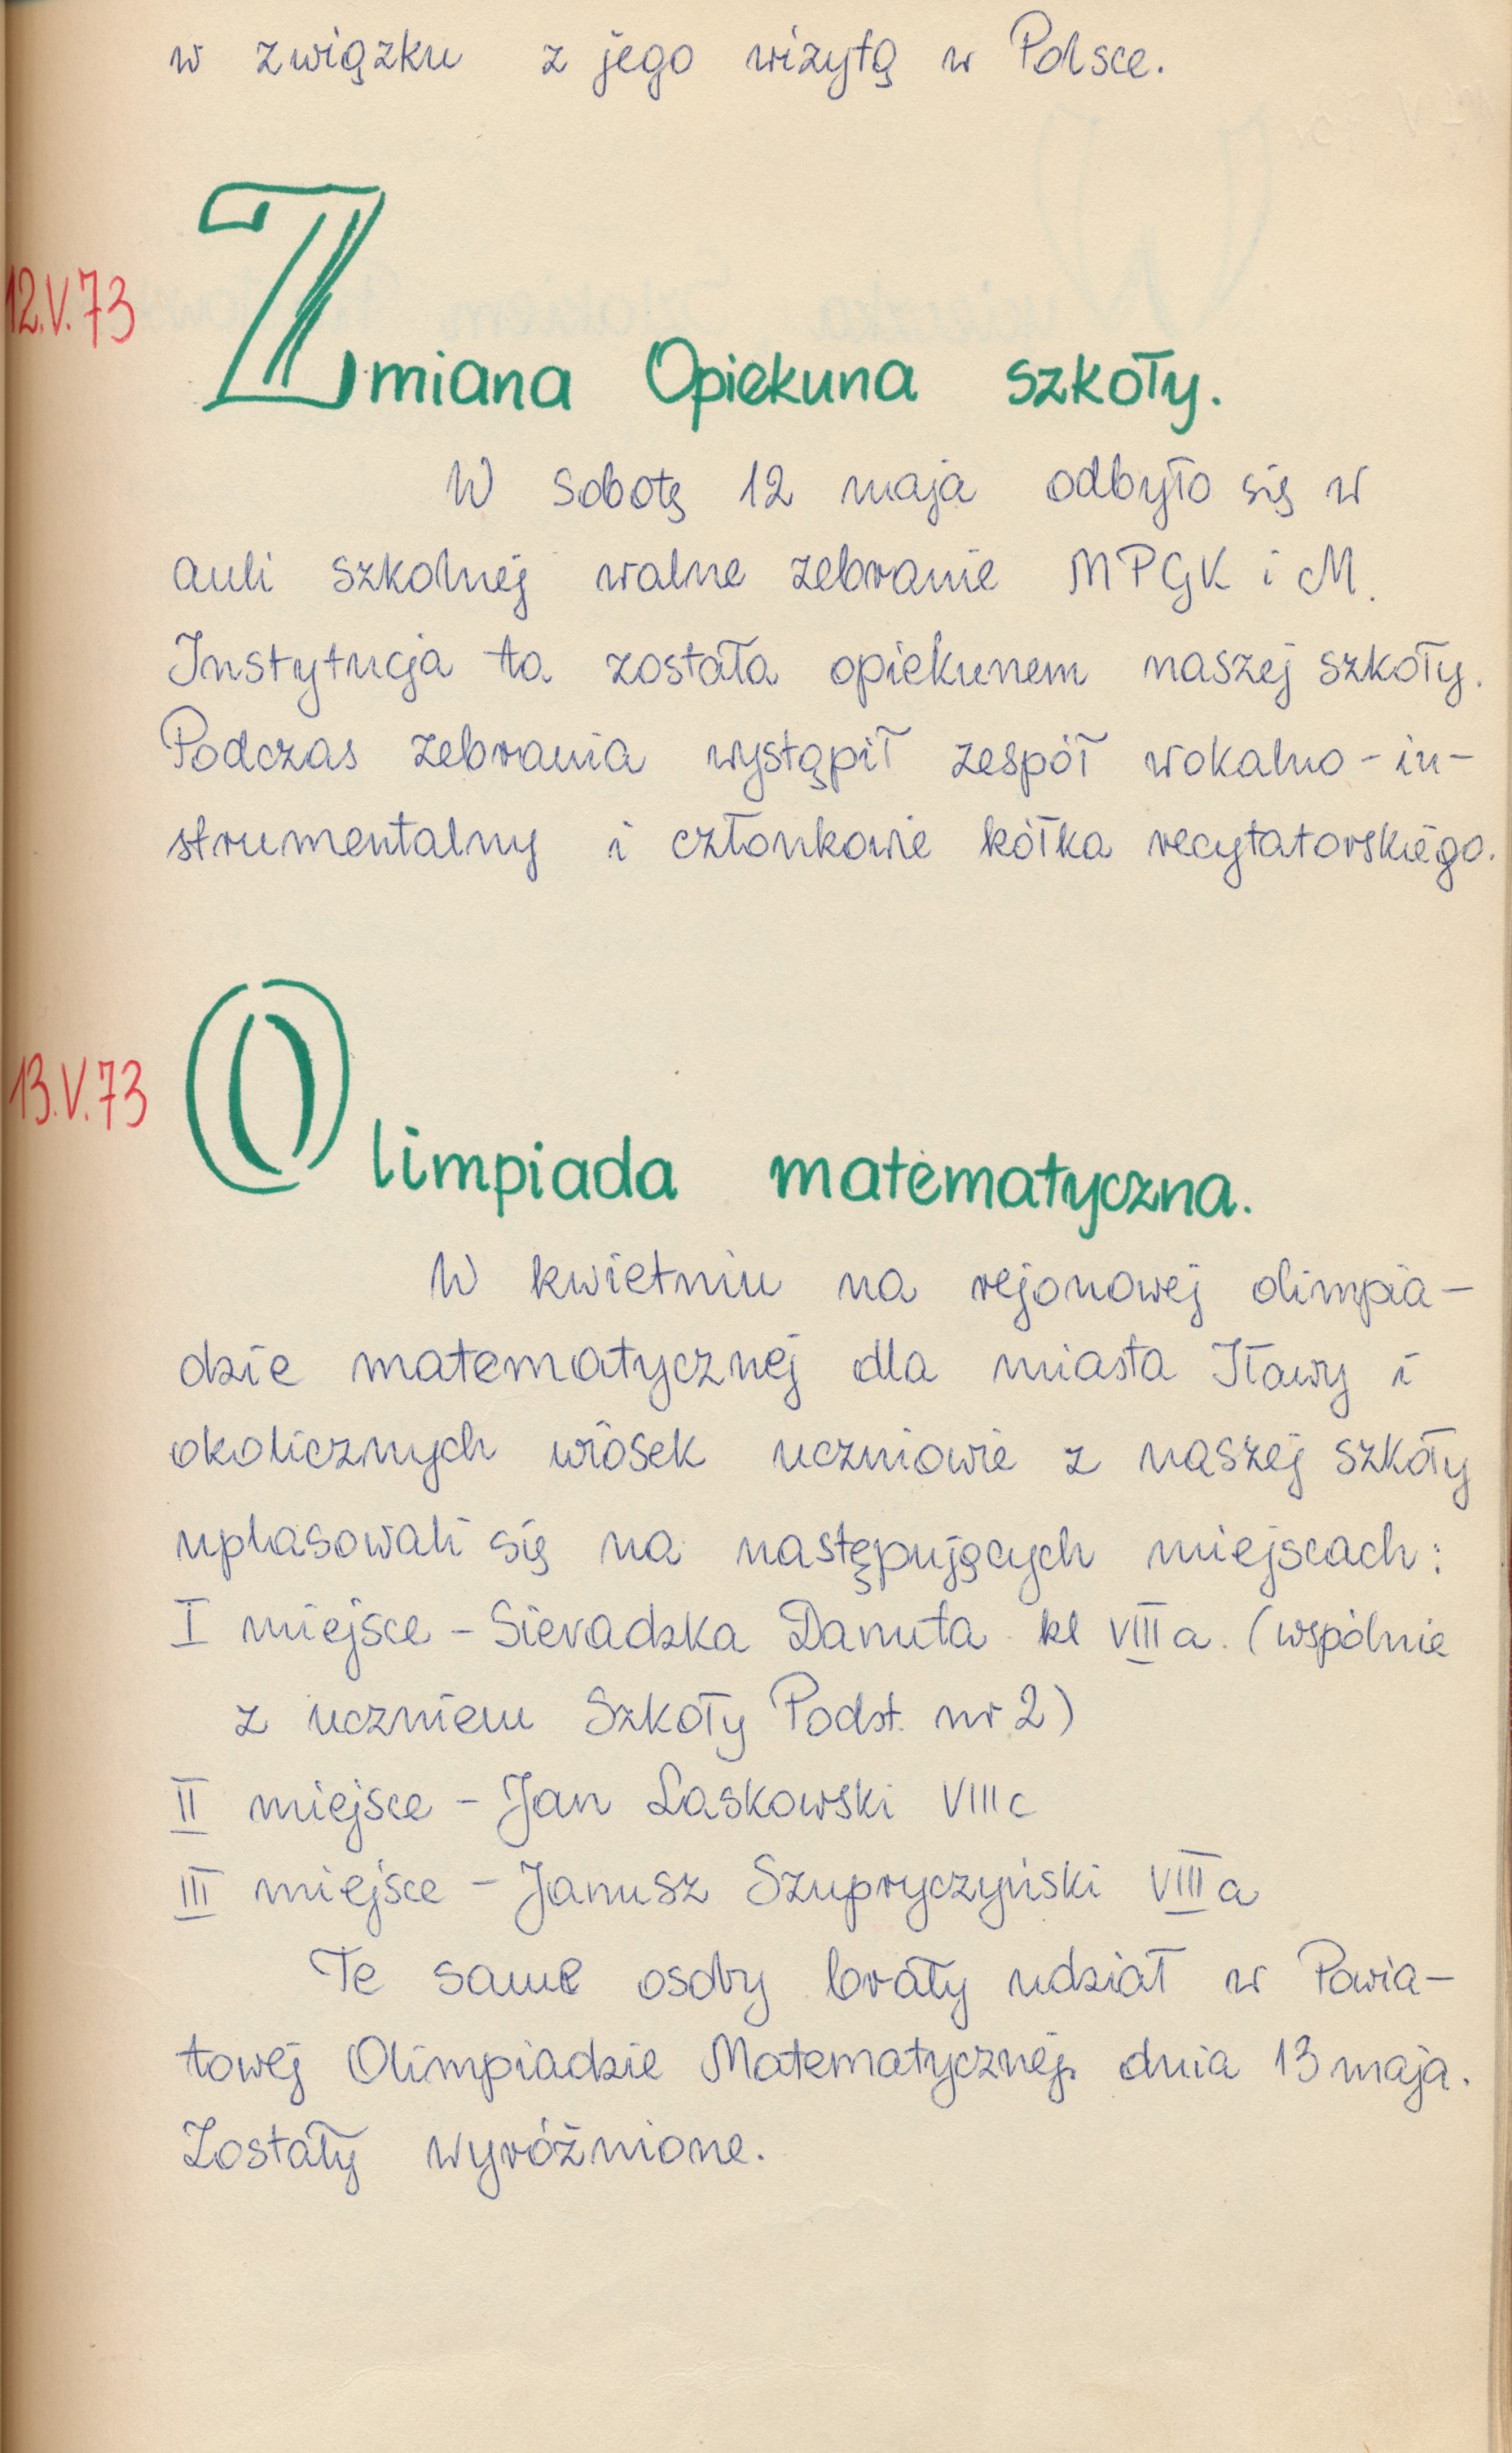 w związku z jego wizytą w Polsce.
12.V.73
Zmiana Opiekuna szkoły.
W sobotę 12 maja odbyło się w
auli szkolnej walne zebranie MPGK i M.
Instytucja ta została opiekunem naszej szkoły.
Podczas zebrania wystąpił zespół wokalno-in-
strumentalny i członkowie kółka recytatorskiego.
13.V.73
Olimpiada matematyczna.
W kwietniu na rejonowej olimpia-
dzie matematycznej dla miasta Iławy i
okolicznych wiosek uczniowie z naszej szkoły
uplasowali się na następujących miejscach:
I miejsce - Sieradzka Danuta kl VIII a. (wspólnie
z uczniem Szkoły Podst. nr 2)
II miejsce - Jan Laskowski VIII c
III miejsce - Janusz Szupryczyński VIII a
Te same osoby brały udział w Powia-
towej Olimpiadzie Matematycznej. dnia 13 maja.
Zostały wyróżnione.